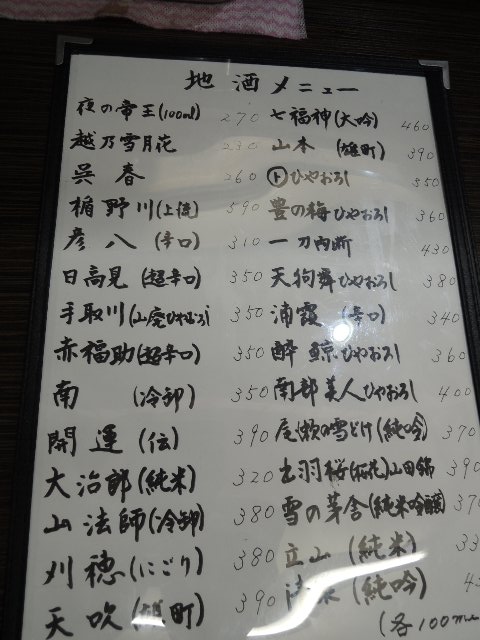 地酒メニュー
夜の帝王(100ml) 270
越乃雪月花 230
呉春 260
楯野川(上僅) 590
彦八 (辛口) 310
日高見 (超辛口) 350
手取川(山廃ひやおろし 350
赤福助(超辛口) 350
南 (冷卸) 350
開運 (伝) 390
大治郎(純米) 320
山法師(冷卸) 380
刈穂(にごり) 380
天吹(雄町) 390
七福神(大吟) 460
山本 (雄町) 390
ひやおろし 350
豊の梅ひやおろし 360
一刀両断 430
天狗舞ひやおろし 380
浦霞 (辛口) 340
酔鯨ひやおろし 360
南部美人ひやおろし 400
尾瀬の雪どけ(純吟) 370
出羽桜(桜花)山田錦 390
雪の茅舎(純米吟醸) 370
立山 (純米)
(純吟)
(各100ml